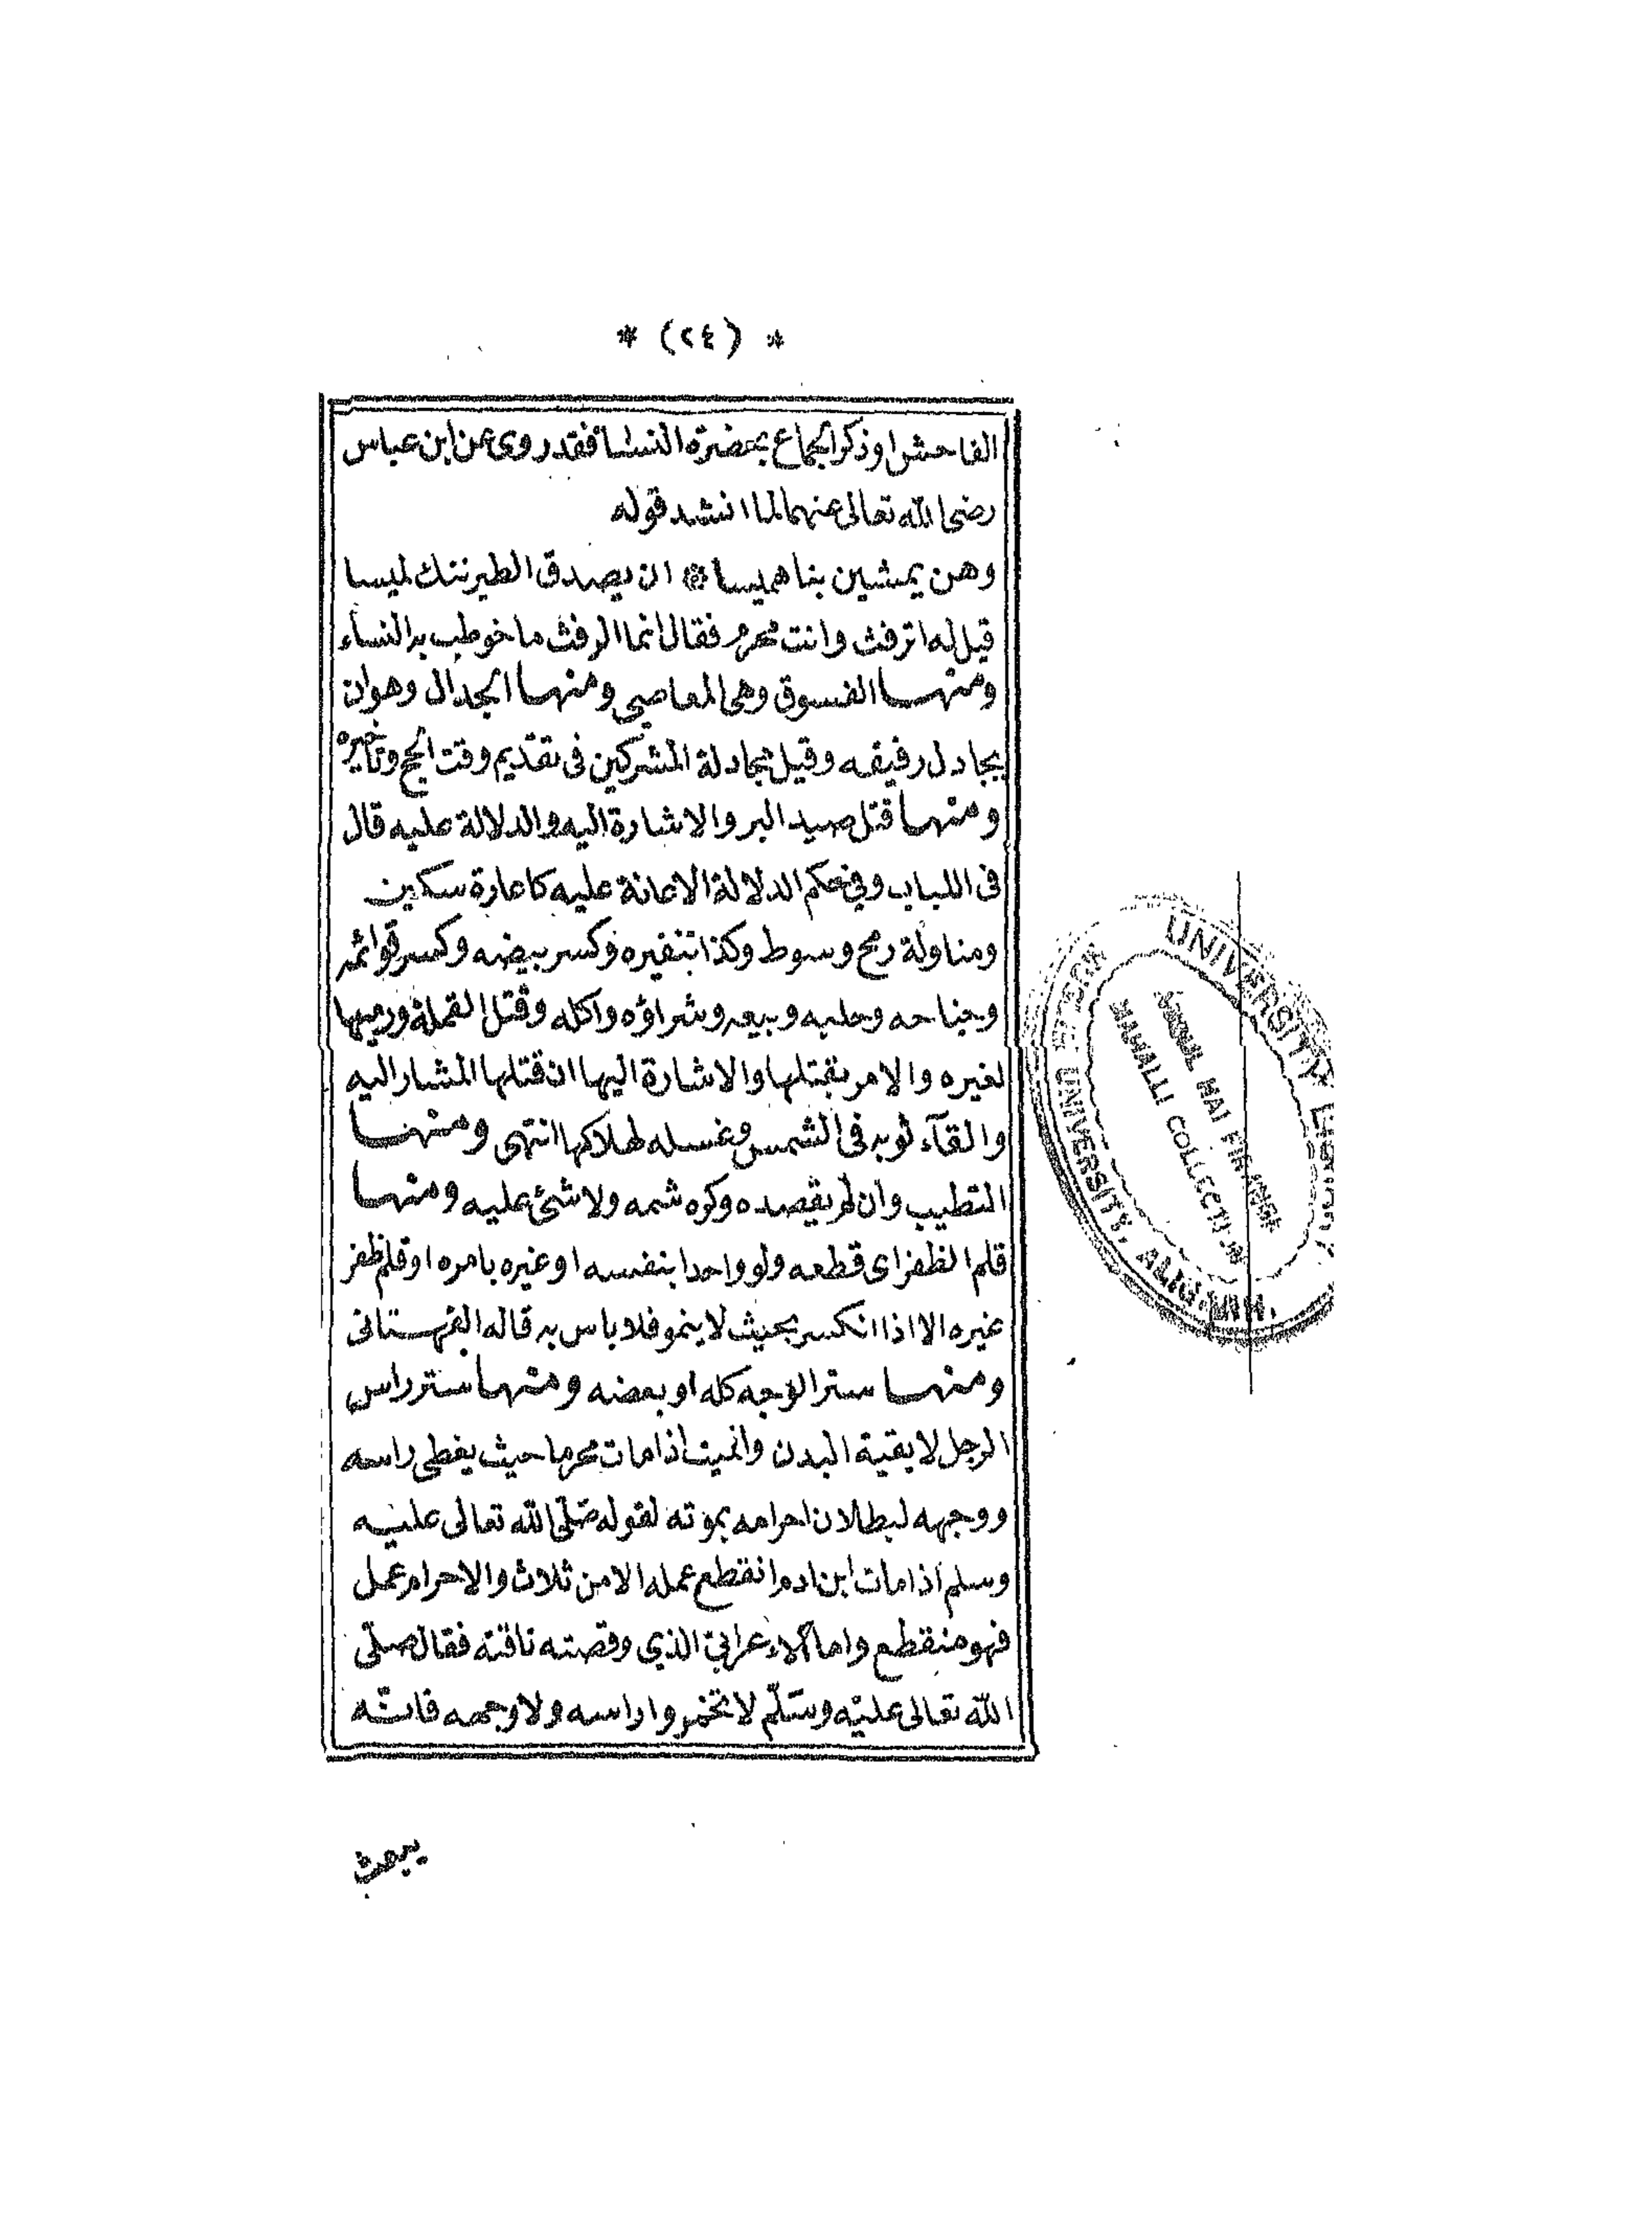 * (٢٤) *
الفاحش او ذكر الجماع بحضرة النسا فقد روى عن ابن عباس
رضى الله تعالى عنهما لما انشد قوله
وهن يمشين بنا هميسا ۞ ان يصدق الطير ننك لميسا
قيل له اترفث وانت محرم فقال انما الرفث ما خوطب به النساء
ومنها الفسوق وهى المعاصى ومنها الجدال وهو ان
يجادل رفيقه وقيل مجادلة المشركين فى تقديم وقت الحج وتاخيره
ومنها قتل صيد البر والاشارة اليه والدلالة عليه قال
فى اللباب وفى حكم الدلالة الاعانة عليه كاعارة سكين
ومناولة رمح وسوط وكذا تنفيره وكسر بيضه وكسر قوائمه
وجناحه وحلبه وبيعه وشراؤه واكله وقتل القملة ورميها
لغيره والامر بقتلها والاشارة اليها ان قتلها المشار اليه
والقآء ثوبه فى الشمس وغسله لهلاكها انتهى ومنها
التطيب وان لم يقصده وكره شمه ولا شئ عليه ومنها
قلم الظفر اى قطعه ولو واحدا بنفسه او غيره بامره او قلم ظفر
غيره الا اذا انكسر بحيث لا ينمو فلا باس به قاله القهستانى
ومنها ستر الوجه كله او بعضه ومنها ستر راس
الرجل لا بقية البدن والميت اذا مات محرما حيث يغطى راسه
ووجهه لبطلان احرامه بموته لقوله صلّى الله تعالى عليه
وسلم اذا مات ابن ادم انقطع عمله الا من ثلاث والاحرام عمل
فهو منقطع واما الاعرابى الذي وقصته ناقته فقال صلّى
الله تعالى عليه وسّلم لا تخمروا راسه ولا وجهه فانّه
يبعث
UNIVERSITY
HAI FIRANGI
MAHALLI COLLECTION
UNIVERSITY, ALIGARH.